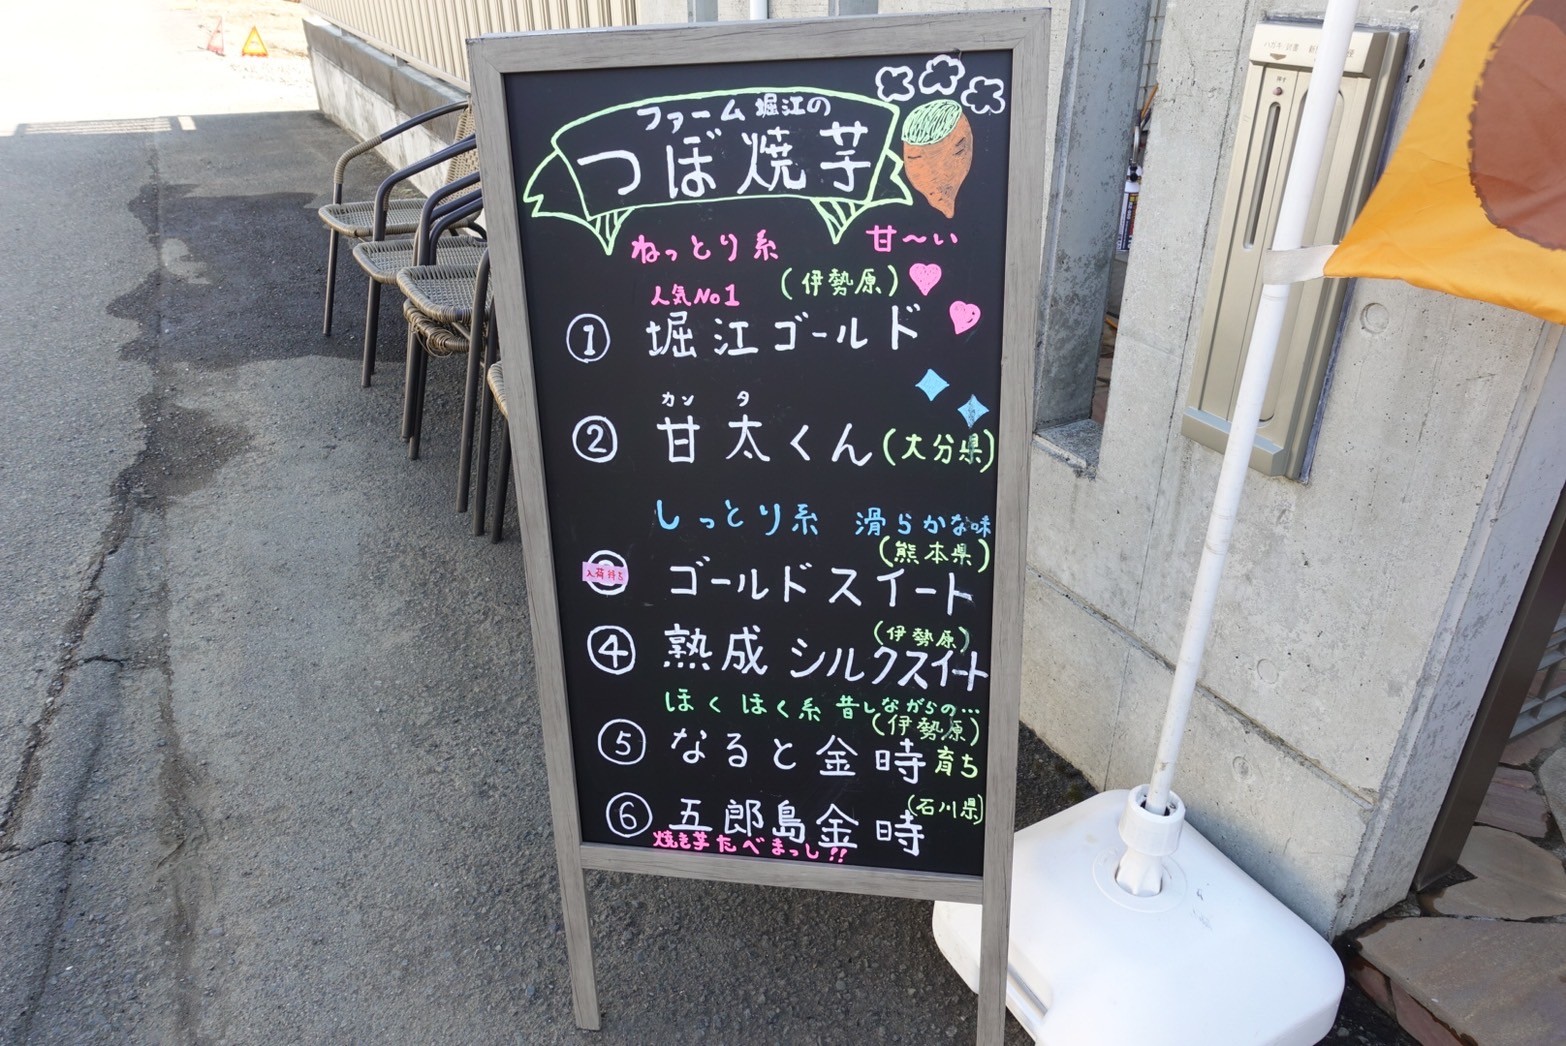 ファーム堀江の
つぼ焼芋
ねっとり系 甘〜い
人気No1 (伊勢原)
① 堀江ゴールド
カンタ
② 甘太くん(大分県)
しっとり系 滑らかな味
(熊本県)
入荷待ち ゴールドスイート
(伊勢原)
④ 熟成シルクスイート
ほくほく系 昔しながらの…
(伊勢原)
⑤ なると金時 育ち
(石川県)
⑥ 五郎島金時
焼き芋たべまっし!!